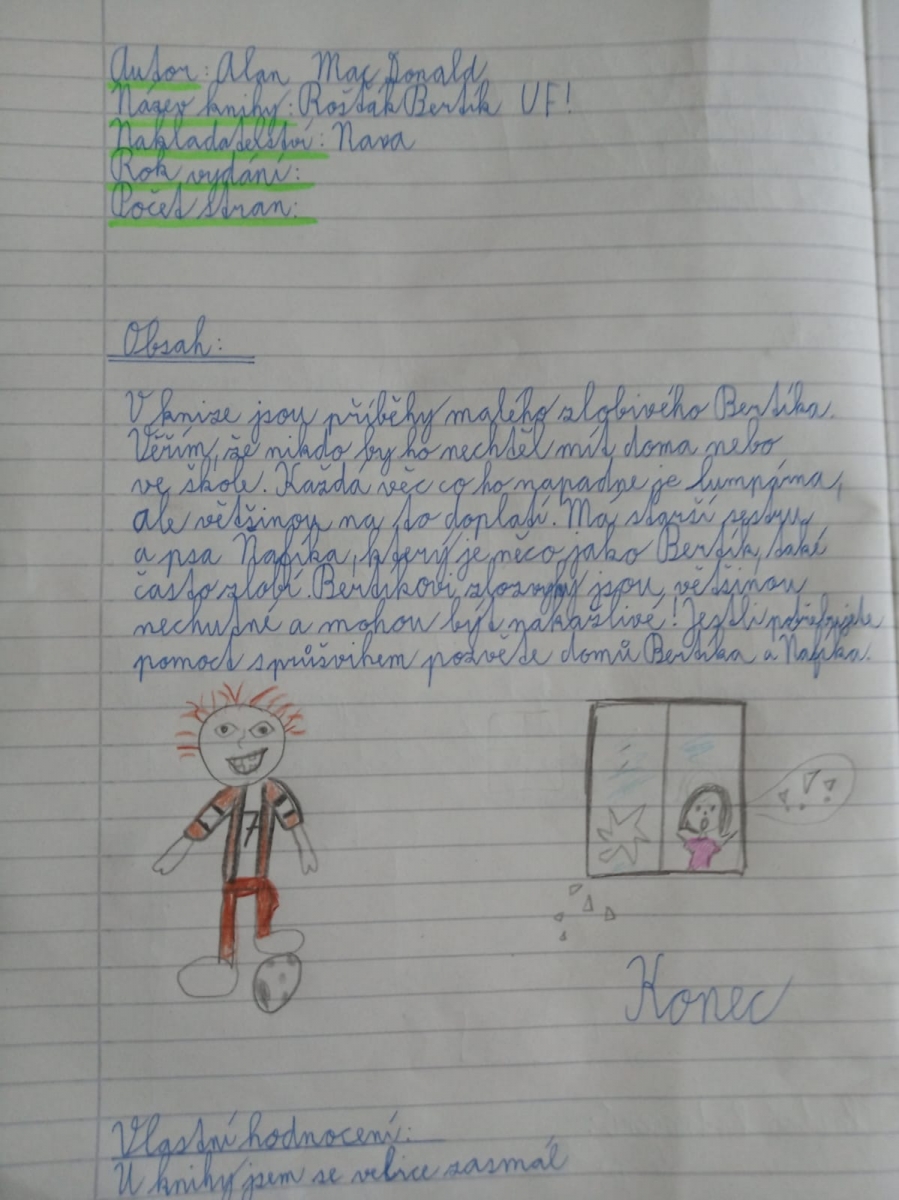 Autor: Alan Mac Donald
Název knihy: Rošťák Bertík UF!
Nakladatelství: Nava
Rok vydání:
Počet stran:
Obsah:
V knize jsou příběhy malého zlobivého Bertíka.
Věřím, že nikdo by ho nechtěl mít doma nebo
ve škole. Každá věc co ho napadne je lumpárna,
ale většinou na to doplatí. Má starší sestru
a psa Nafika, který je něco jako Bertík, také
často zlobí. Bertíkovi zlozvyky jsou většinou
nechutné a mohou být nakažlivé! Jestli potřebujete
pomoct s průšvihem pozvěte domů Bertíka a Nafika.
7
Konec
Vlastní hodnocení:
U knihy jsem se velice zasmál